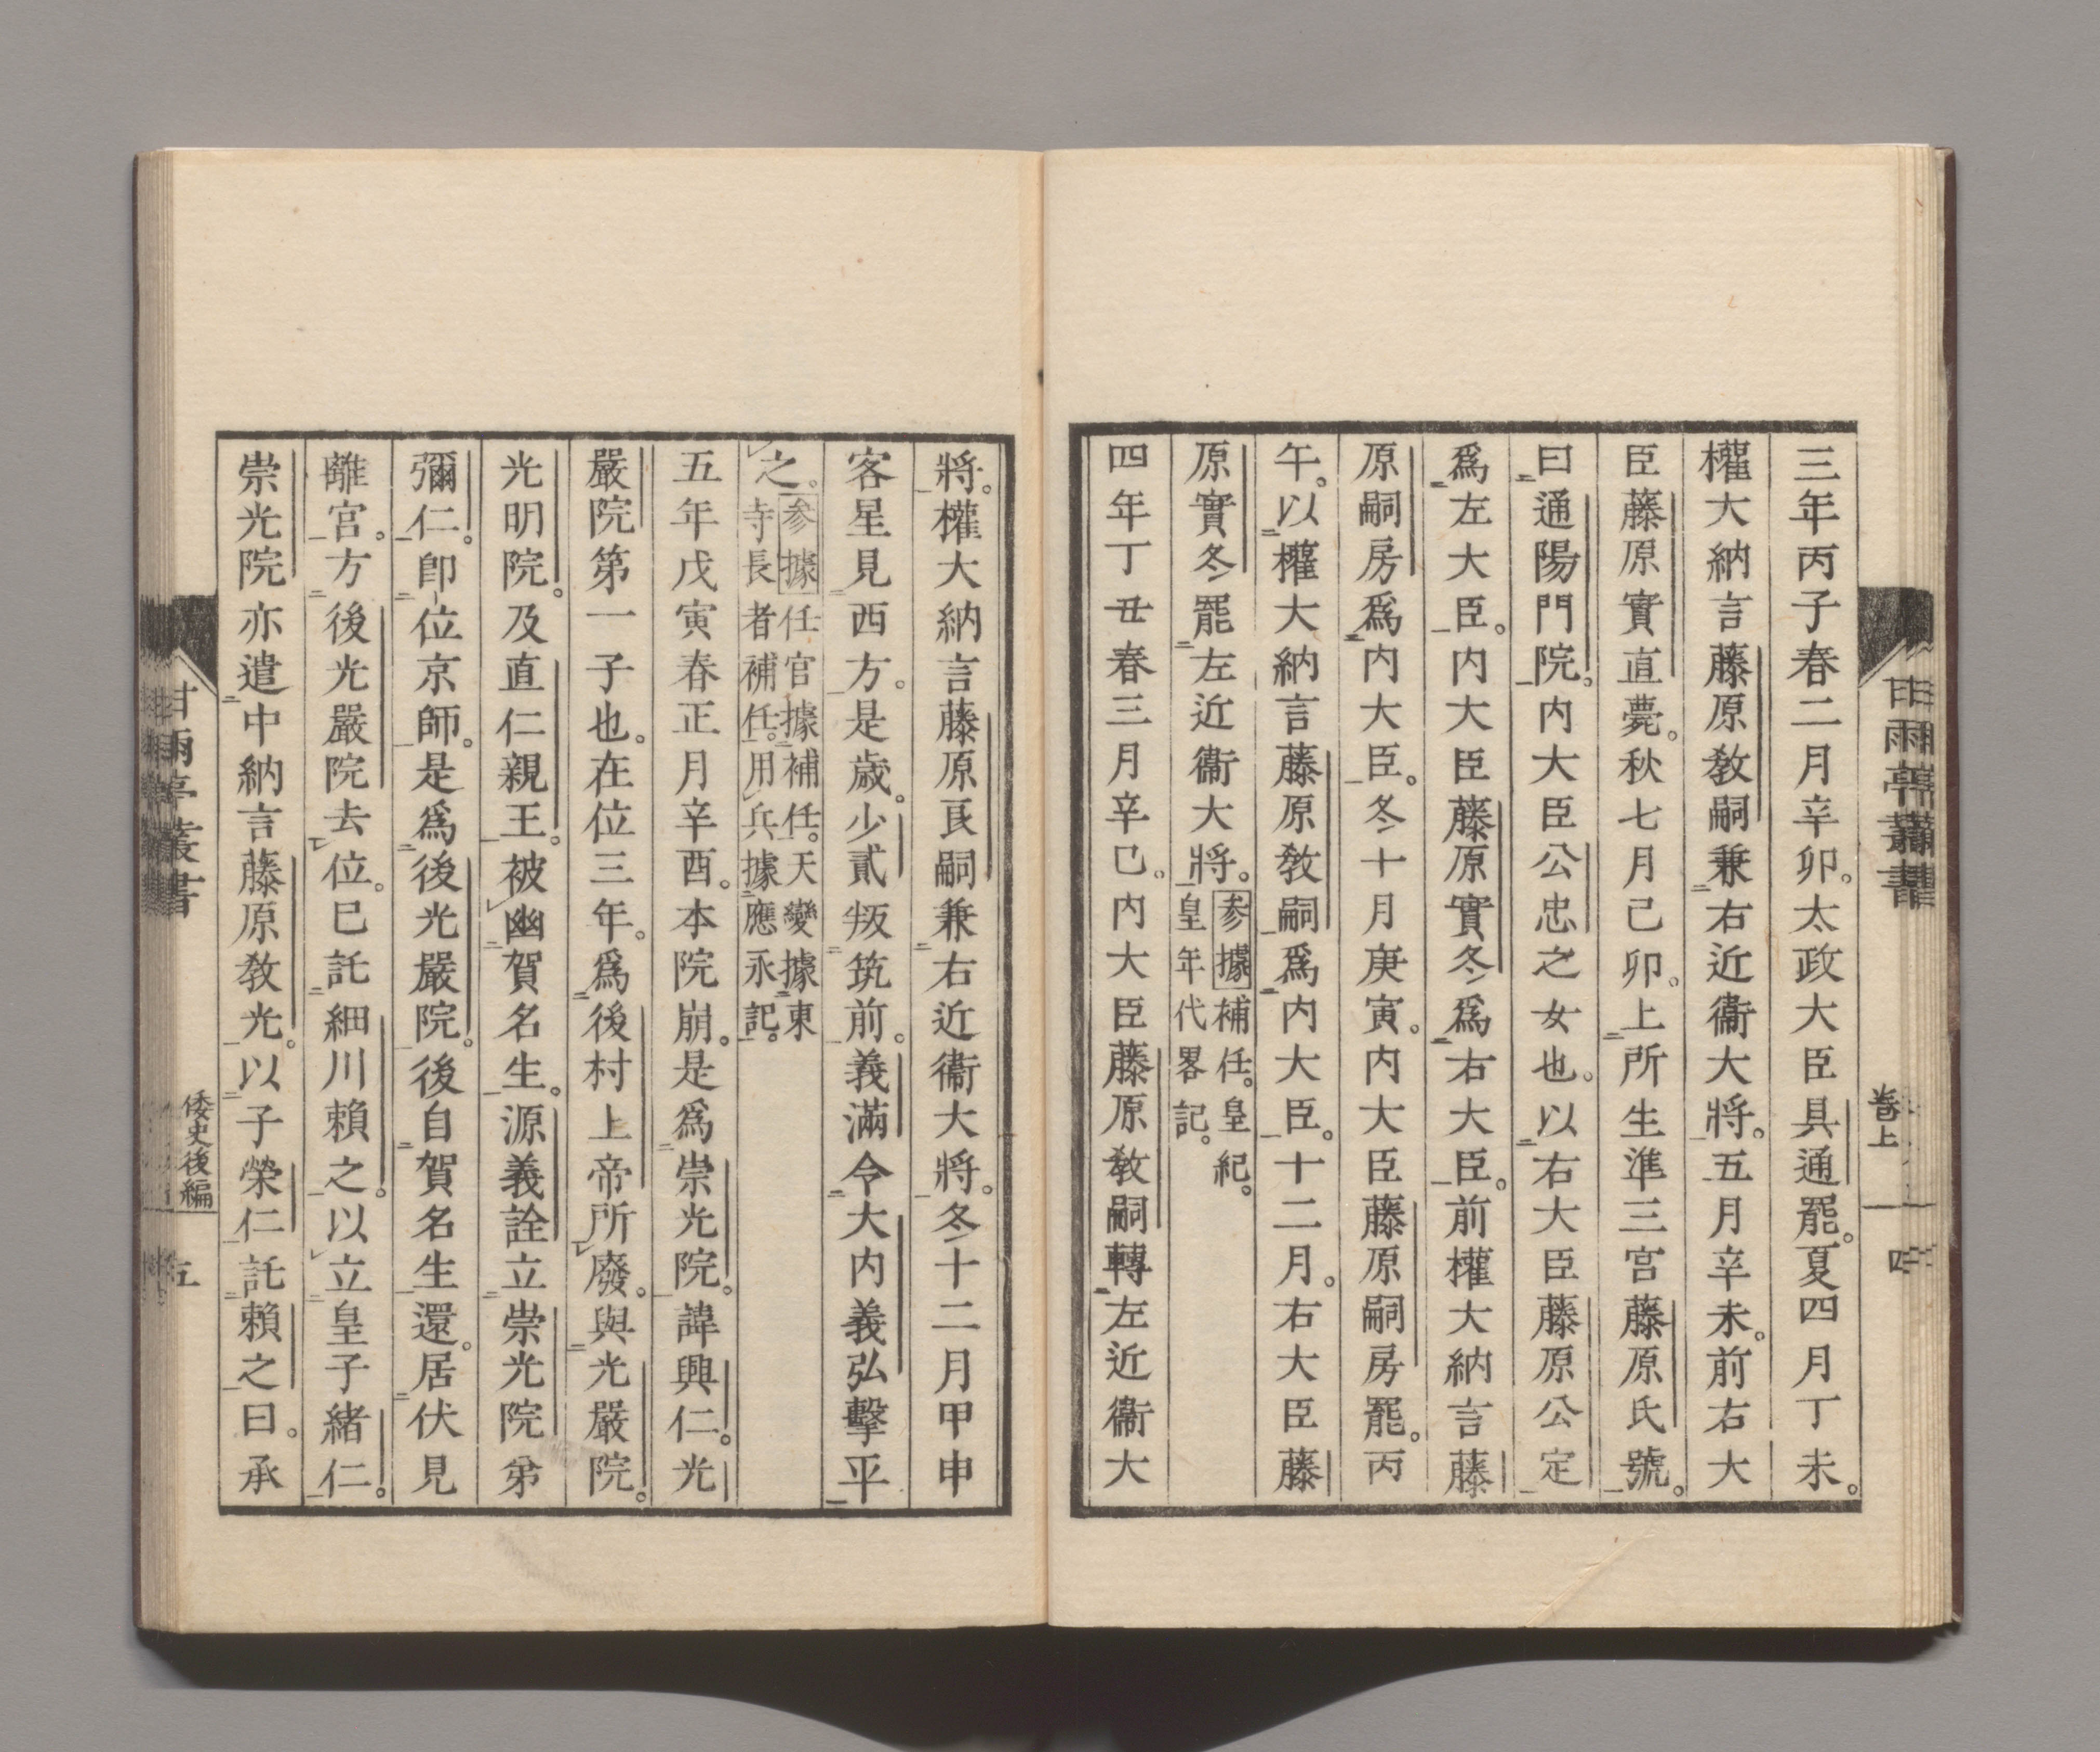 三年丙子春二月辛卯。太政大臣具通罷。夏四月丁未。
權大納言藤原敎嗣兼右近衞大將。五月辛未。前右大
臣藤原實直薨。秋七月己卯。上所生準三宮藤原氏號。
曰通陽門院。内大臣公忠之女也。以右大臣藤原公定
爲左大臣。内大臣藤原實冬爲右大臣。前權大納言藤
原嗣房爲内大臣。冬十月庚寅。内大臣藤原嗣房罷。丙
午。以權大納言藤原敎嗣爲内大臣。十二月。右大臣藤
原實冬罷左近衞大將。參據補任。皇紀。
皇年代畧記。
四年丁丑春三月辛己。内大臣藤原敎嗣轉左近衞大
卷上
四
將。權大納言藤原良嗣兼右近衞大將。冬十二月甲申
客星見西方。是歲。少貳叛筑前。義滿令大内義弘擊平
之。參據任官據補任。天變據東
寺長者補任。用兵據應永記。
五年戊寅春正月辛酉。本院崩。是爲崇光院。諱興仁。光
嚴院第一子也。在位三年。爲後村上帝所廢。與光嚴院。
光明院。及直仁親王。被幽賀名生。源義詮立崇光院弟
彌仁。卽位京師。是爲後光嚴院。後自賀名生還。居伏見
離宮。方後光嚴院去位。已託細川賴之。以立皇子緒仁。
崇光院亦遣中納言藤原敎光。以子榮仁託賴之曰。承
甘雨亭叢書
倭史後編
五